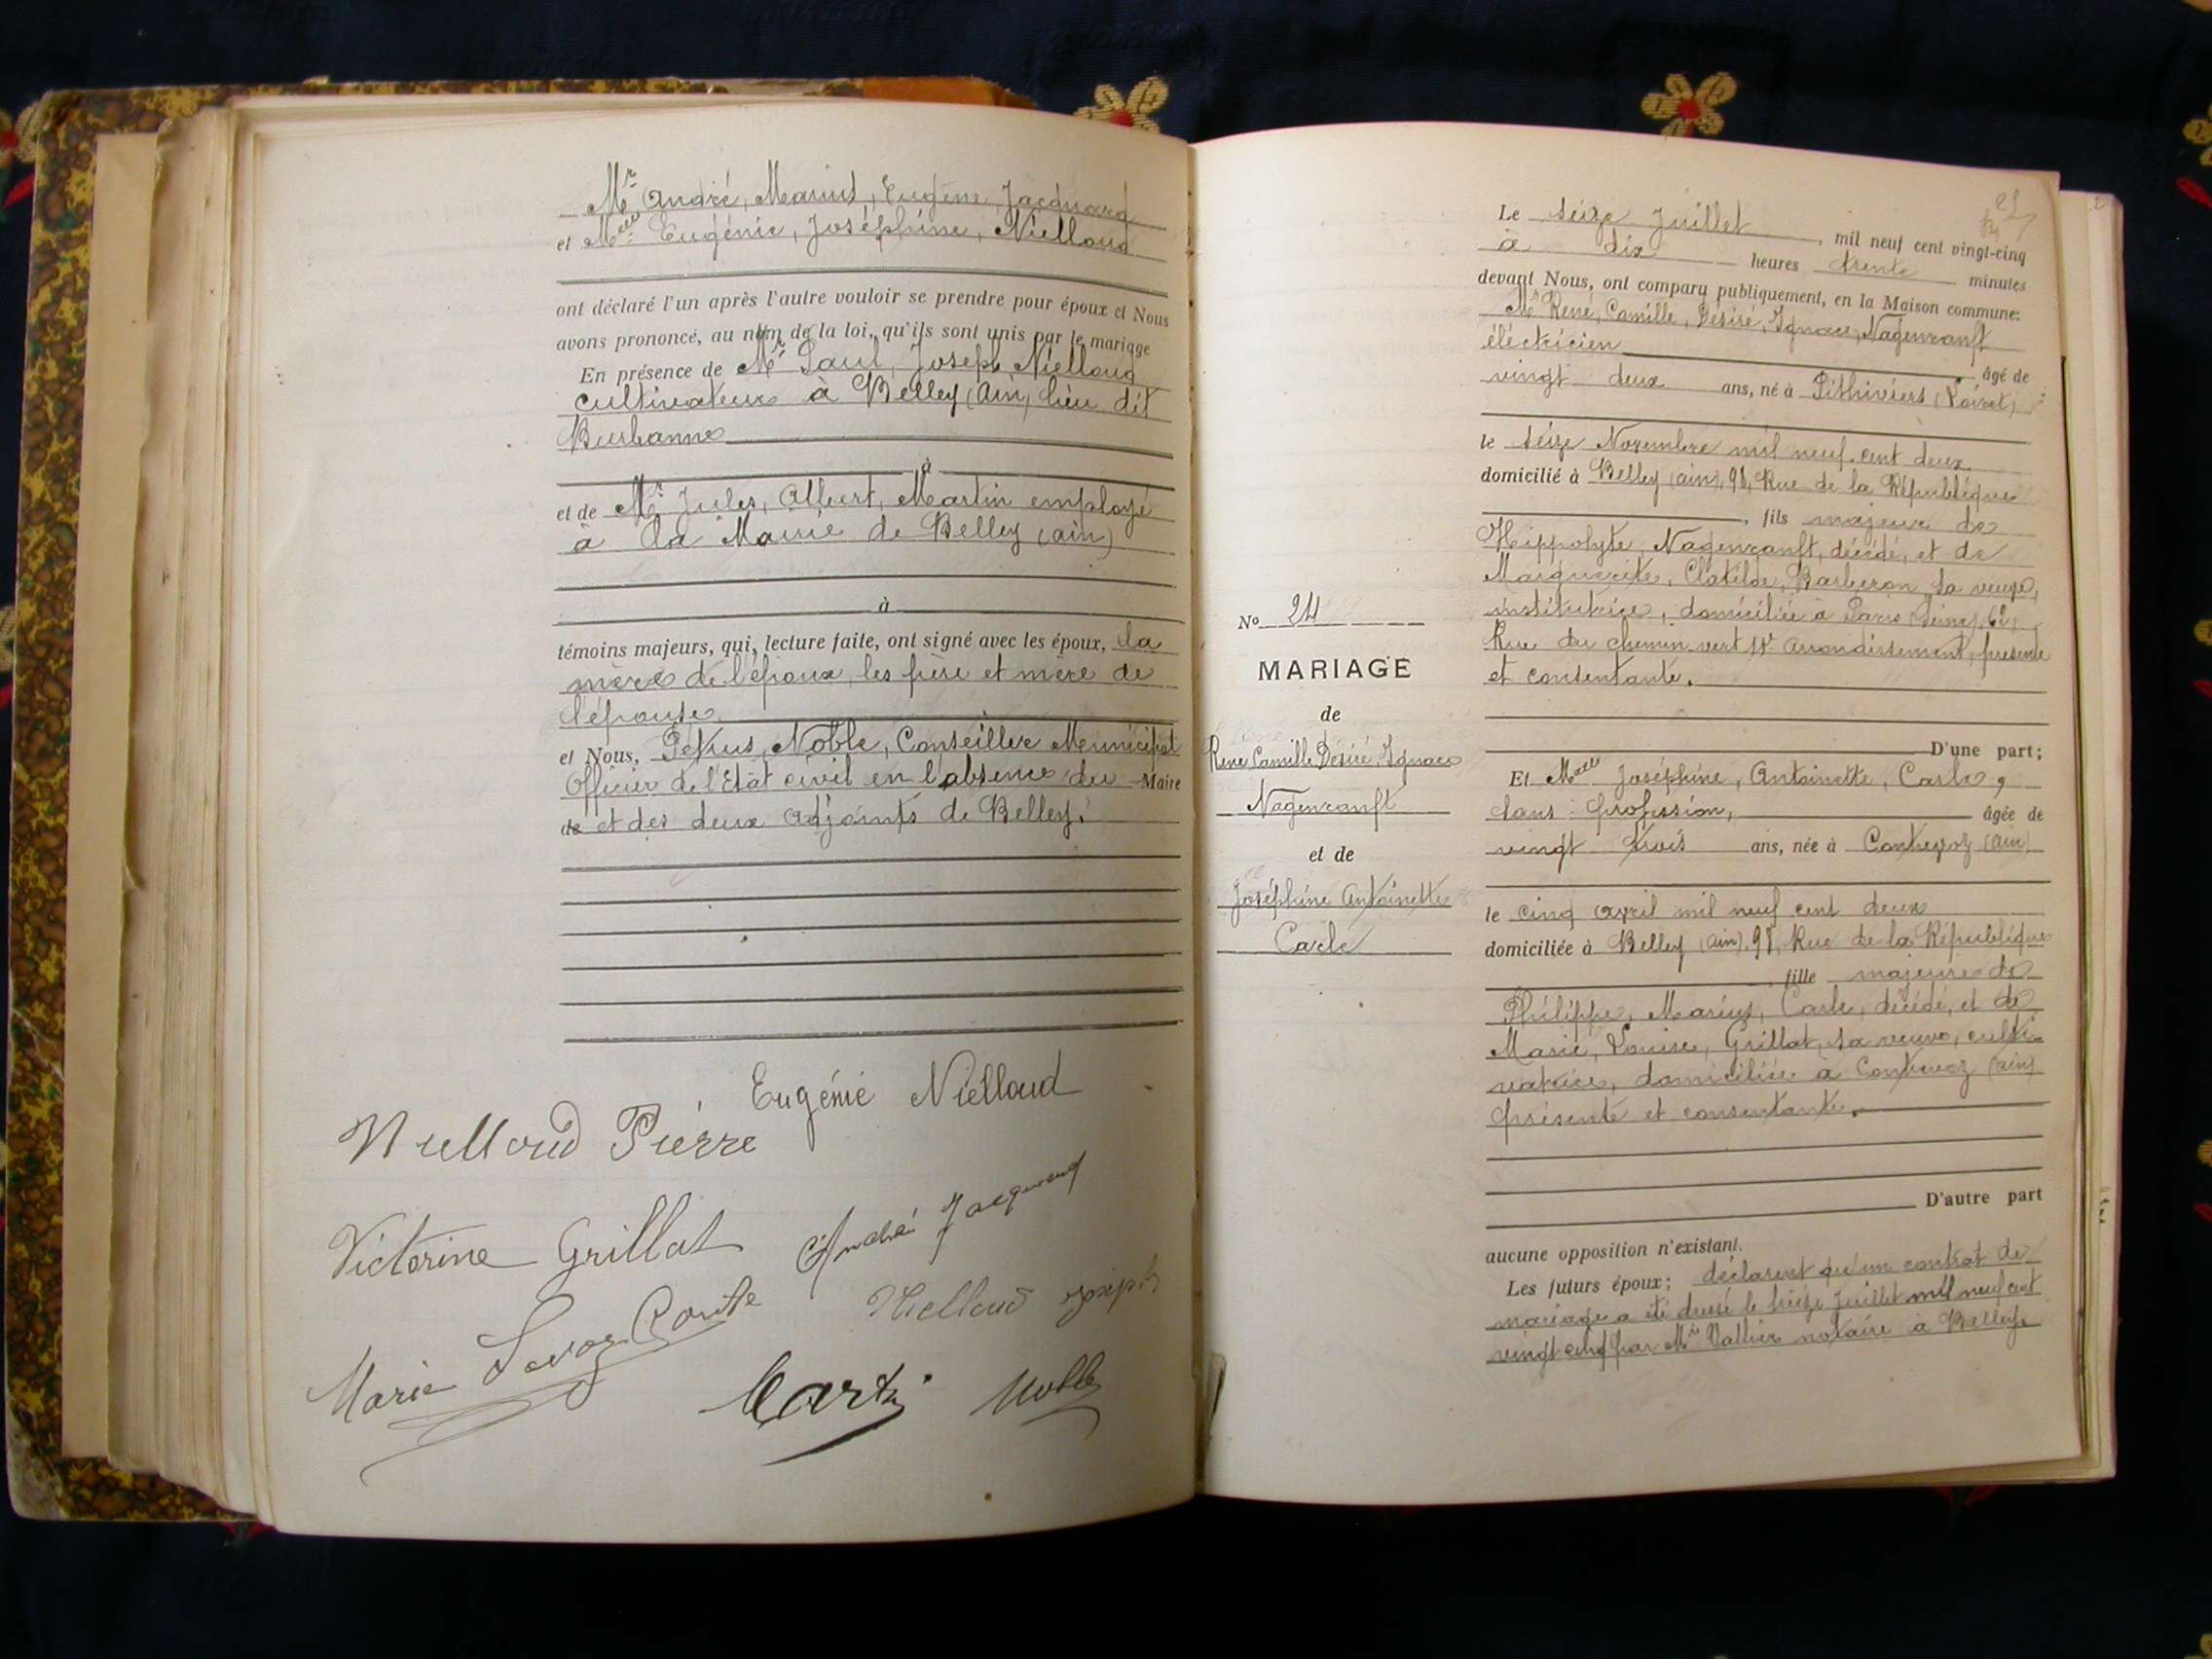 Mr André, Marius, Eugène Jacquard
et Melle Eugénie, Joséphine, Nielloud
ont déclaré l'un après l'autre vouloir se prendre pour époux et Nous
avons prononcé, au nom de la loi, qu'ils sont unis par le mariage
En présence de Mr Paul, Joseph, Nielloud
cultivateur à Belley (Ain) lieu dit
à
et de Mr Jules, Albert, Martin employé
à la Mairie de Belley (ain)
à
témoins majeurs, qui, lecture faite, ont signé avec les époux, la
mère de l'époux, les père et mère de
l'épouse
et Nous, Noble, Conseiller Municipal
Officier de l'Etat civil en l'absence du Maire
de et des deux adjoints de Belley.
Eugénie Nielloud
Nielloud Pierre
Victorine Grillat
André Jacquard
Marie
Nielloud Joseph
Martin
Noble
Le seize Juillet, mil neuf cent vingt-cinq
à dix heures trente minutes
devant Nous, ont comparu publiquement, en la Maison commune:
Mr René, Camille, Désiré, Ignace, Nagenranft
électricien âgé de
vingt deux ans, né à Pithiviers (Loiret)
le seize Novembre mil neuf cent deux
domicilié à Belley (ain), 98, Rue de la République
, fils majeur de
Hippolyte, Nagenranft, décédé, et de
Marguerite, Clotilde, Barberon sa veuve,
institutrice, domiciliée à Paris (Seine), 62,
Rue du chemin vert XIe arrondissement, présente
et consentante.
No 24
MARIAGE
de
René Camille Désiré, Ignace
Nagenranft
et de
Joséphine Antoinette
Carle
D'une part;
Et Melle Joséphine, Antoinette, Carle,
sans profession, âgée de
vingt trois ans, née à Contrevoz (Ain)
le cinq avril mil neuf cent deux
domiciliée à Belley (ain), 98, Rue de la République
, fille majeure de
Philippe, Marius, Carle, décédé, et de
Marie, Louise, Grillat, sa veuve, culti-
vatrice, domiciliée à Contrevoz (ain)
présente et consentante.
D'autre part
aucune opposition n'existant.
Les futurs époux; déclarent qu'un contrat de
mariage a été dressé le treize Juillet mil neuf cent
vingt cinq par Me Vallier notaire à Belley